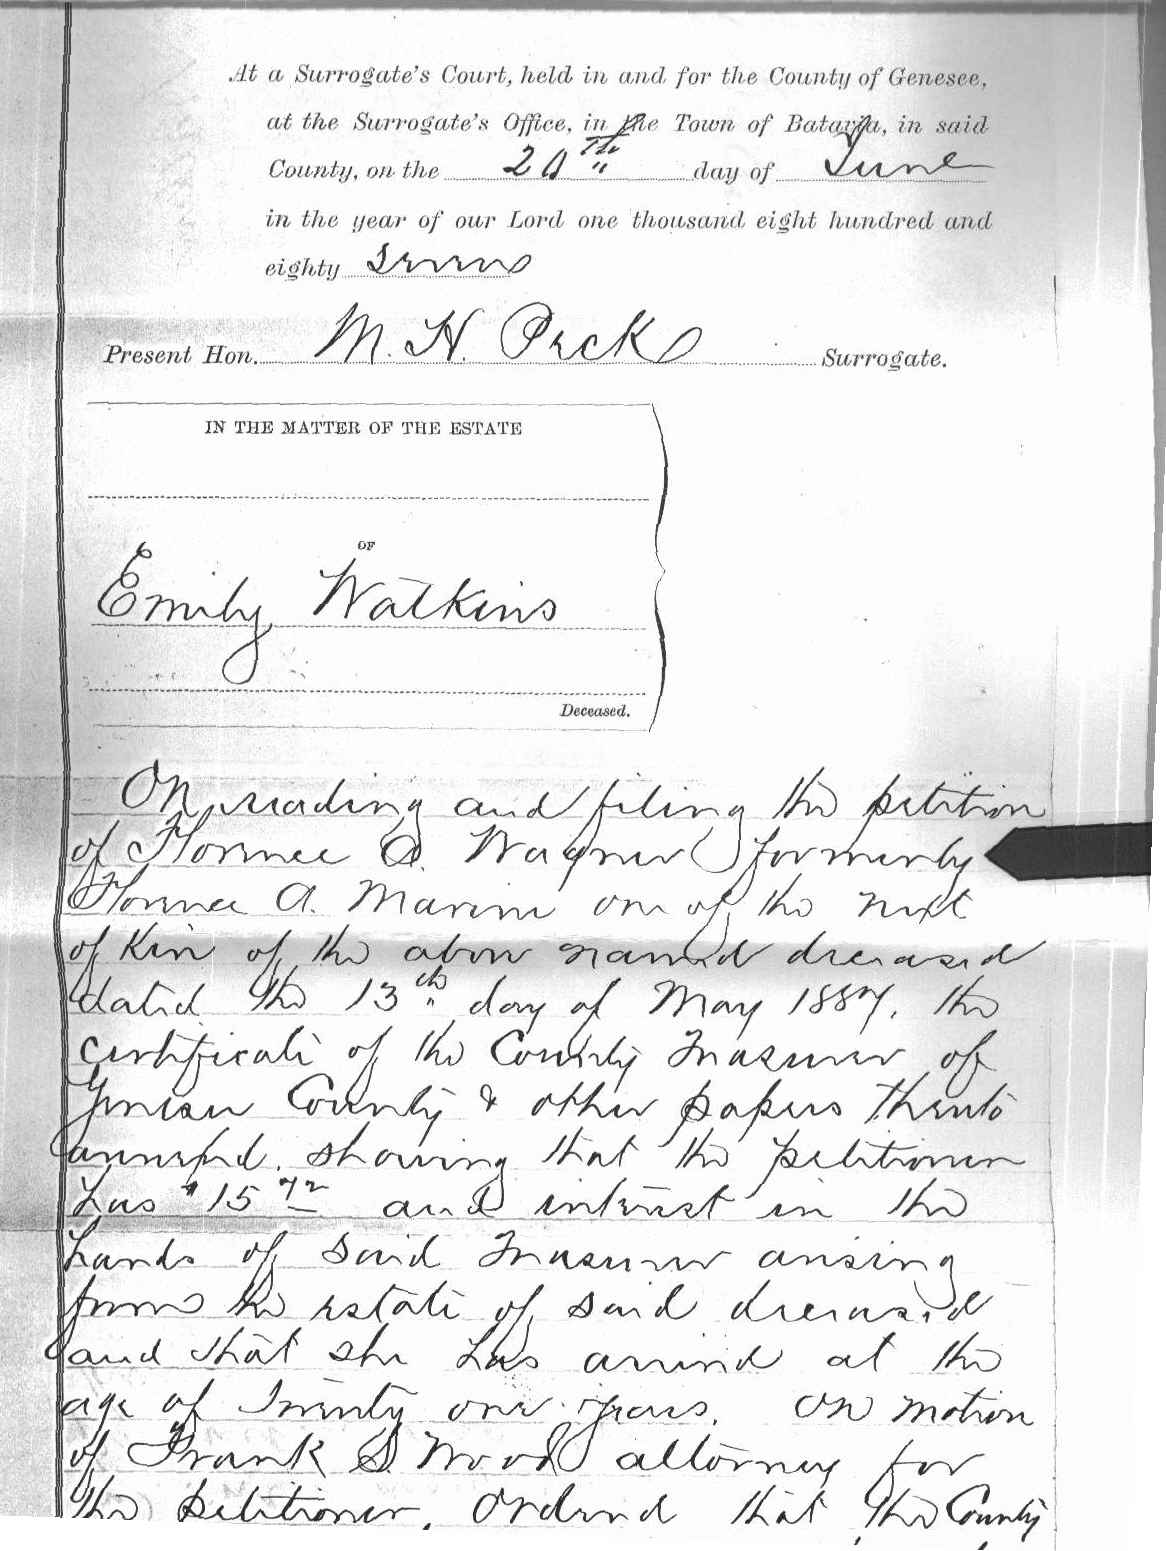 At a Surrogate's Court, held in and for the County of Genesee,
at the Surrogate's Office, in the Town of Batavia, in said
County, on the 20th day of June
in the year of our Lord one thousand eight hundred and
eighty seven
Present Hon. M. H. Peck Surrogate.
IN THE MATTER OF THE ESTATE
OF
Emily Watkins
Deceased.
On reading and filing the petition
of Florence A. Wagner formerly
Florence A. Marine one of the next
of Kin of the above named deceased
dated the 13th day of May 1887, the
certificate of the County Treasurer of
Genesee County & other papers thereto
annexed, showing that the petitioner
has $15 72 and interest in the
hands of said Treasurer arising
from the estate of said deceased
and that she has arrived at the
age of twenty one years. On motion
of Frank S. Wood attorney for
the petitioner, Ordered that the County